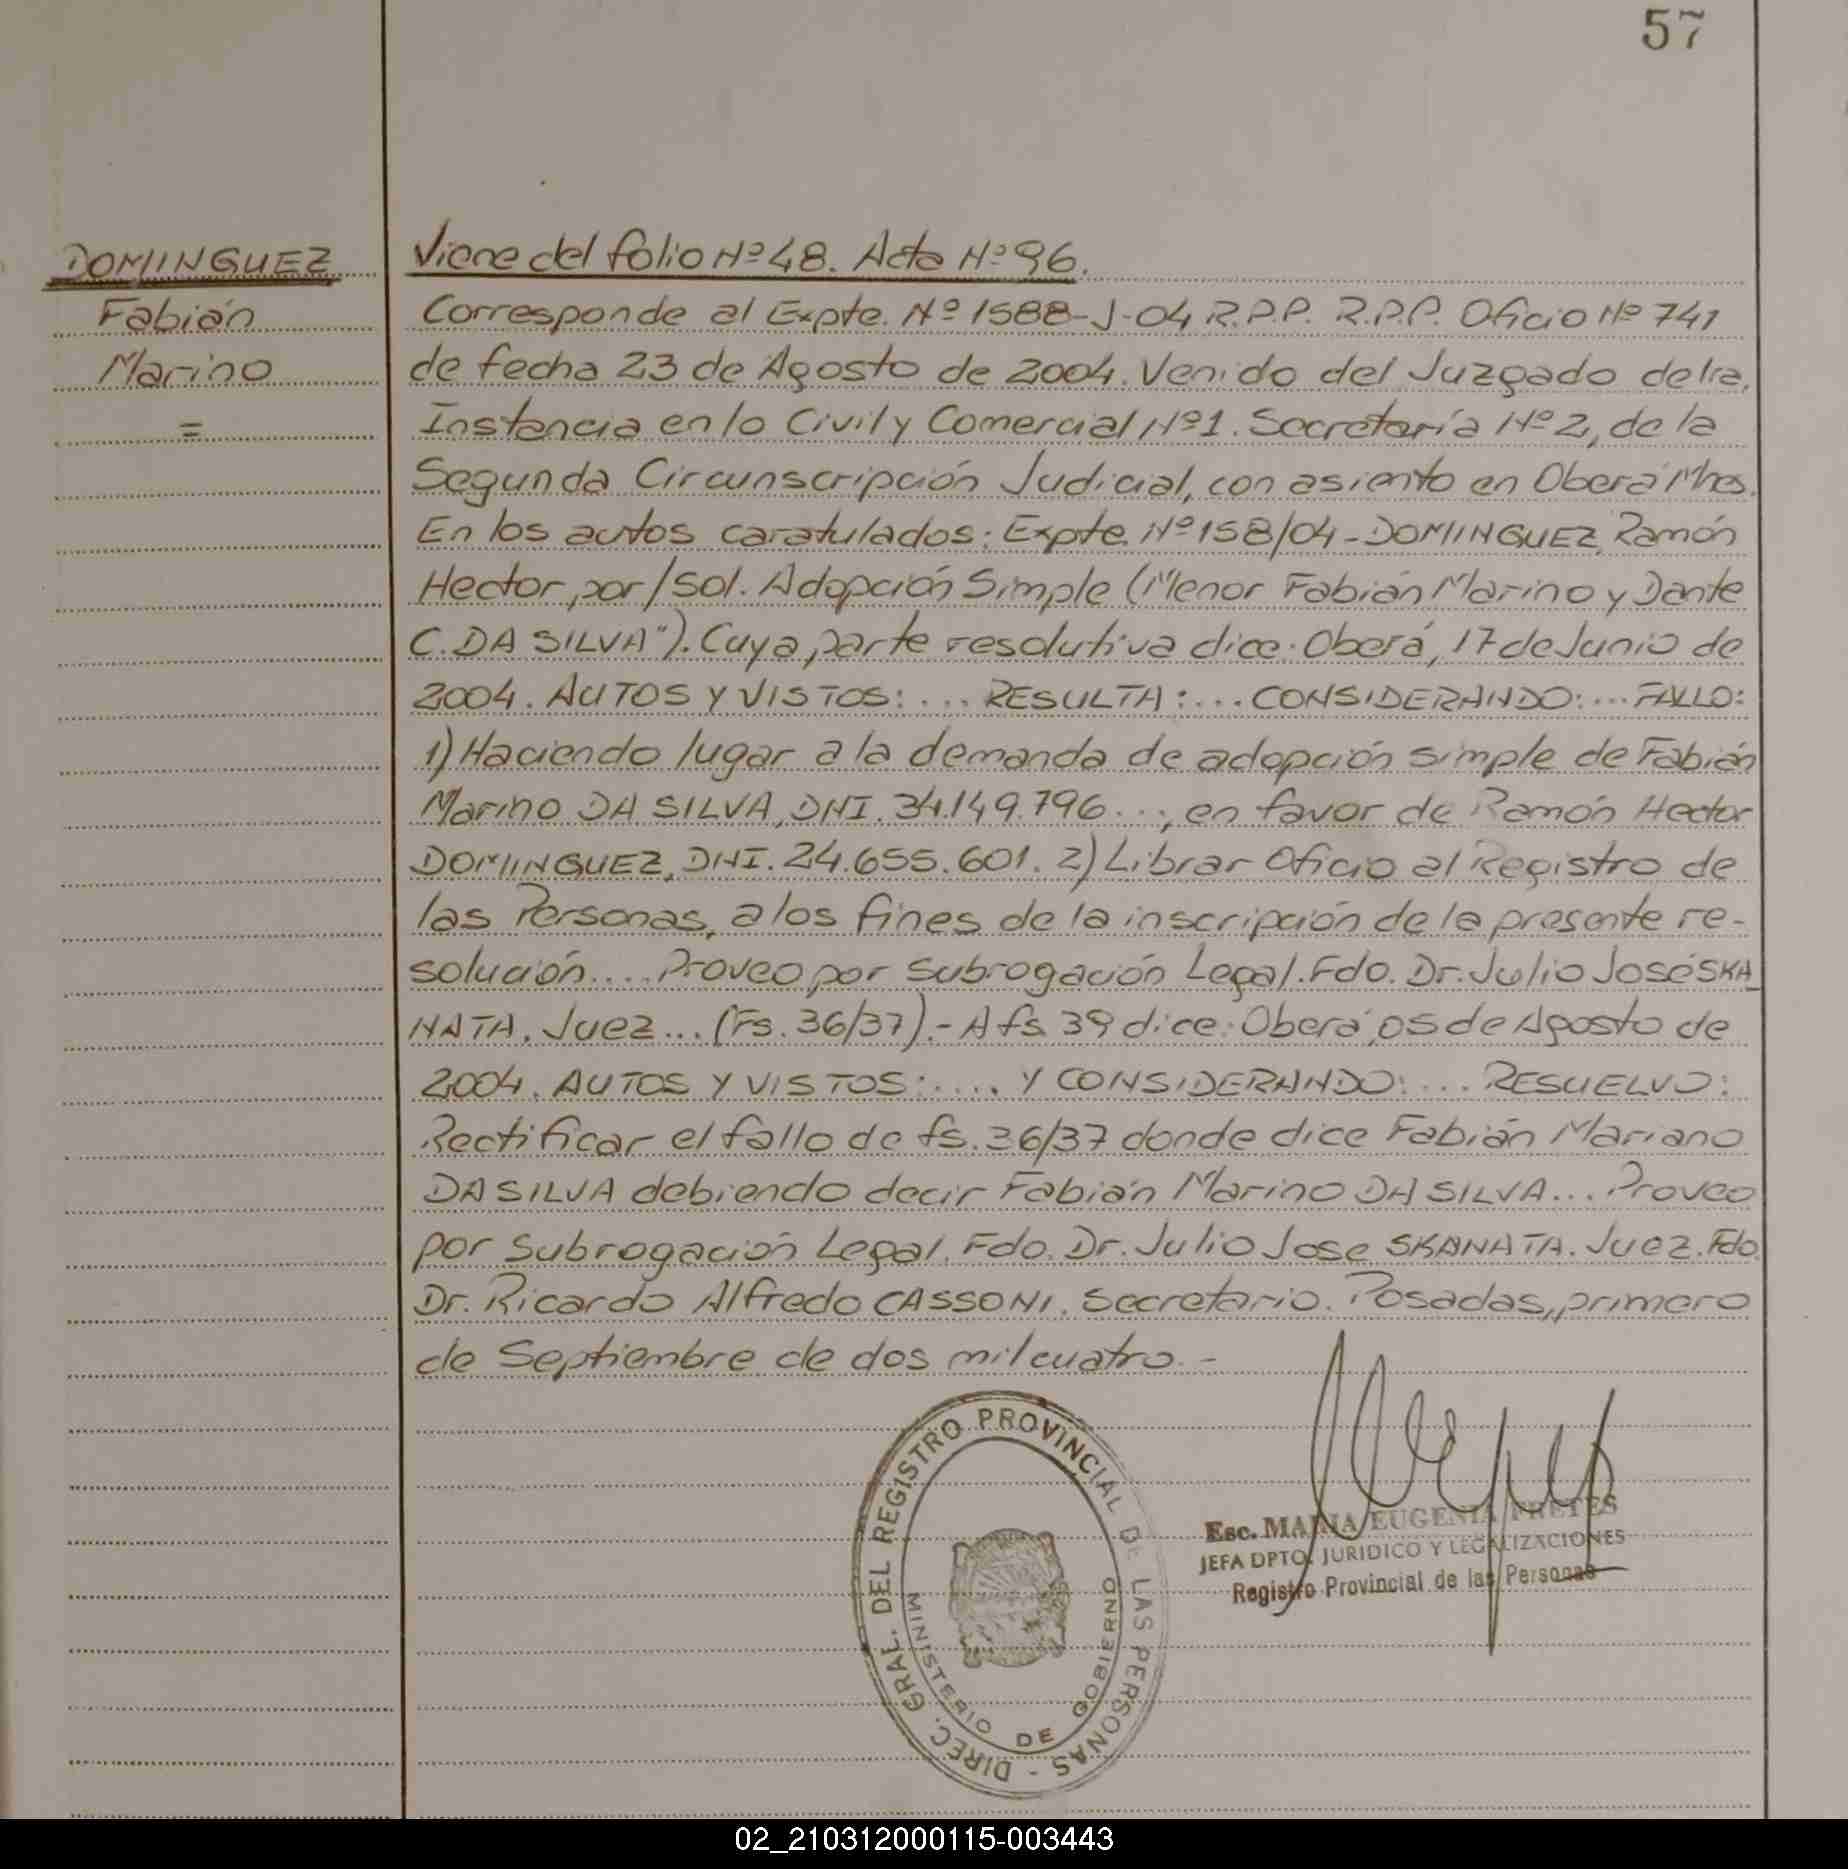 57
DOMINGUEZ
Fabián
Marino
=
Viene del folio Nº 48. Acta Nº 96.
Corresponde al Expte. Nº 1588-J-04 R.P.P. R.P.P. Oficio Nº 741
de fecha 23 de Agosto de 2004. Venido del Juzgado de 1ra.
Instancia en lo Civil y Comercial Nº 1. Secretaría Nº 2, de la
Segunda Circunscripción Judicial, con asiento en Oberá Mnes.
En los autos caratulados: Expte. Nº 158/04 - DOMINGUEZ, Ramón
Hector, por/sol. Adopción Simple (Menor Fabián Marino y Dante
C. DA SILVA"). Cuya parte resolutiva dice: Oberá, 17 de Junio de
2004. AUTOS Y VISTOS: ... RESULTA: ... CONSIDERANDO: ... FALLO:
1) Haciendo lugar a la demanda de adopción simple de Fabián
Marino DA SILVA, DNI. 34.149.796 ..., en favor de Ramón Hector
DOMINGUEZ, DNI. 24.655.601. 2) Librar Oficio al Registro de
las Personas, a los fines de la inscripción de la presente re-
solución.... Proveo por Subrogación Legal. Fdo. Dr. Julio José SKA_
NATA. Juez ... (Fs. 36/37).- A fs. 39 dice: Oberá, 05 de Agosto de
2004. AUTOS Y VISTOS: .... Y CONSIDERANDO: ... RESUELVO:
Rectificar el fallo de fs. 36/37 donde dice Fabián Mariano
DA SILVA debiendo decir Fabián Marino DA SILVA... Proveo
por Subrogación Legal. Fdo. Dr. Julio Jose SKANATA. Juez. Fdo.
Dr. Ricardo Alfredo CASSONI. Secretario. Posadas, primero
de Septiembre de dos mil cuatro.-
DIREC. GRAL. DEL REGISTRO PROVINCIAL DE LAS PERSONAS -
MINISTERIO DE GOBIERNO
Esc. MARIA EUGENIA FRETES
JEFA DPTO. JURIDICO Y LEGALIZACIONES
Registro Provincial de las Personas
02_210312000115-003443